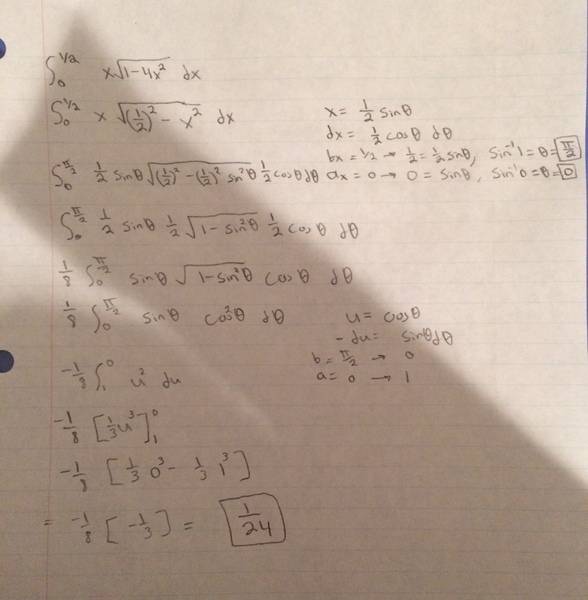 ∫₀^1/2 x√(1-4x²) dx
∫₀^1/2 x √((1/2)² - x²) dx
x = 1/2 sinθ
dx = 1/2 cosθ dθ
bx = 1/2 → 1/2 = 1/2 sinθ, sin⁻¹1 = θ = π/2
ax = 0 → 0 = sinθ, sin⁻¹0 = θ = 0
∫₀^π/2 1/2 sinθ √((1/2)² - (1/2)² sin²θ) 1/2 cosθ dθ
∫₀^π/2 1/2 sinθ 1/2 √(1-sin²θ) 1/2 cosθ dθ
1/8 ∫₀^π/2 sinθ √(1-sin²θ) cosθ dθ
1/8 ∫₀^π/2 sinθ cos²θ dθ
u = cosθ
-du = sinθdθ
b = π/2 → 0
a = 0 → 1
-1/8 ∫₁^0 u² du
-1/8 [1/3 u³]₁^0
-1/8 [1/3 0³ - 1/3 1³]
= -1/8 [-1/3] = 1/24